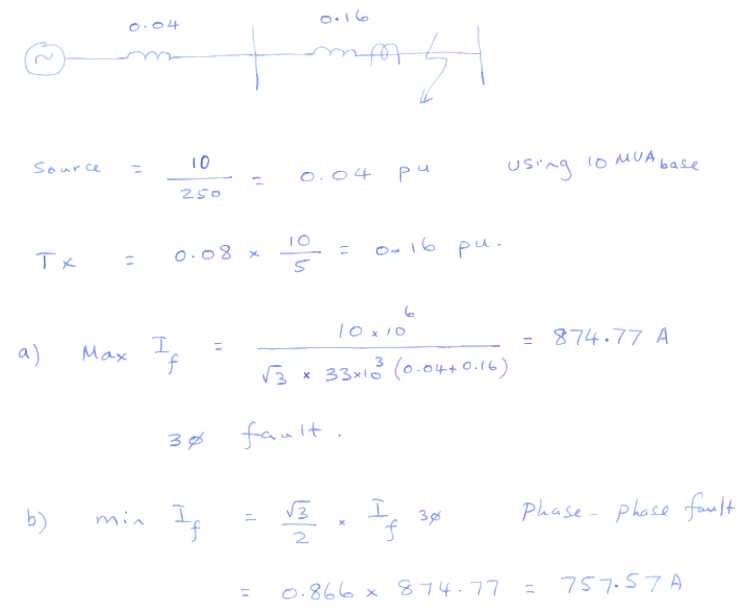 0.04 0.16
~
Source = 10/250 = 0.04 pu using 10 MVA base
Tx = 0.08 × 10/5 = 0.16 pu.
a) Max If = 10 × 10^6 / √3 × 33×10^3 (0.04+0.16) = 874.77 A
3ø fault.
b) min If = √3/2 × If 3ø Phase - phase fault
= 0.866 × 874.77 = 757.57 A